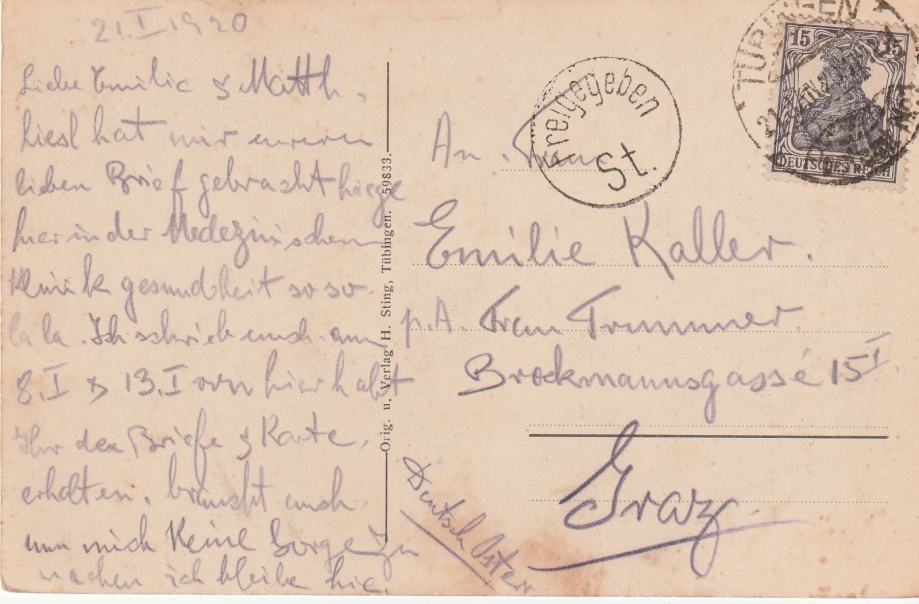 21.I 1920
Liebe Emilie & Matth.
Liesl hat mir eueren
lieben Brief gebracht liege
hier in der Medezinischen
Klinik gesundheit so so
la la. Ich schrieb euch am
8.I & 13.I von hier habt
Ihr den Briefe & Karte,
erhalten. braucht euch
um mich Keine Sorge zu
machen ich bleibe hie.
Orig. u. Verlag H. Sting, Tübingen. 59833.
Freigegeben
St.
TÜBINGEN
15 15
DEUTSCHES REICH
An Frau
Emilie Kaller.
p.A. Frau Trummer.
Brockmannsgasse 15 I.
Graz.
Deutsch Österr